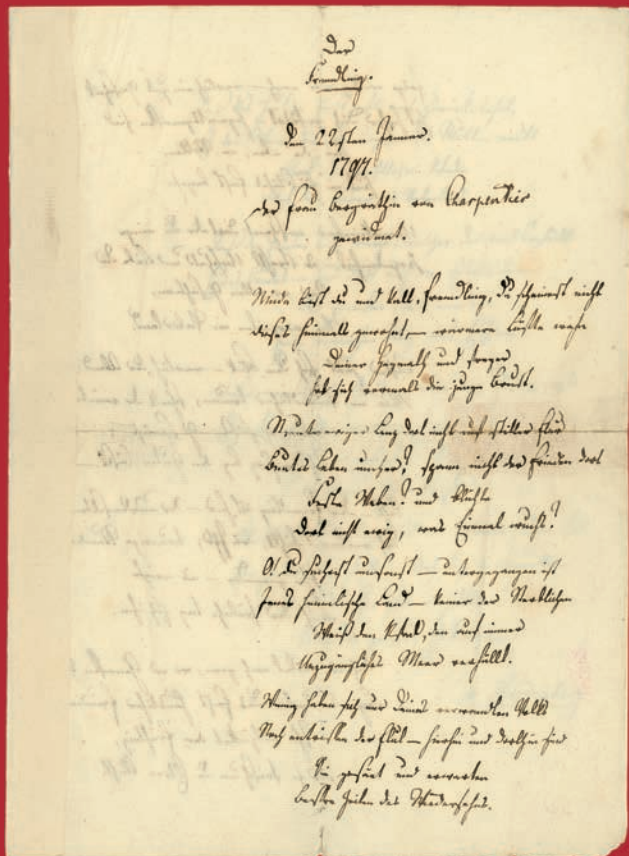 Der
Fremdling.
den 22sten Jänner.
1797.
der Frau Bergräthin von Charpentier
gewidmet.
Müde bist du und kalt, Fremdling, Du scheinest nicht
dieses Himmels gewohnt – wärmere Lüfte wehn
Deiner Heymath und freyer
hob sich vormals die junge Brust.
Streute ewiger Lenz dort nicht auf stiller Flur
Buntes Leben umher? spann nicht der Frieden dort
Feste Weben? und blühte
Dort nicht ewig, was Einmal wuchs?
O! du suchest umsonst – untergegangen ist
Jenes himmlische Land – keiner der Sterblichen
Weiß den Pfad, den auf immer
Unzugängliches Meer verhüllt.
Wenig haben sich nur deines verwandten Volks
Noch entrissen der Flut – hierhin und dorthin sind
Sie gesäet und erwarten
beßre Zeiten des Wiedersehns.